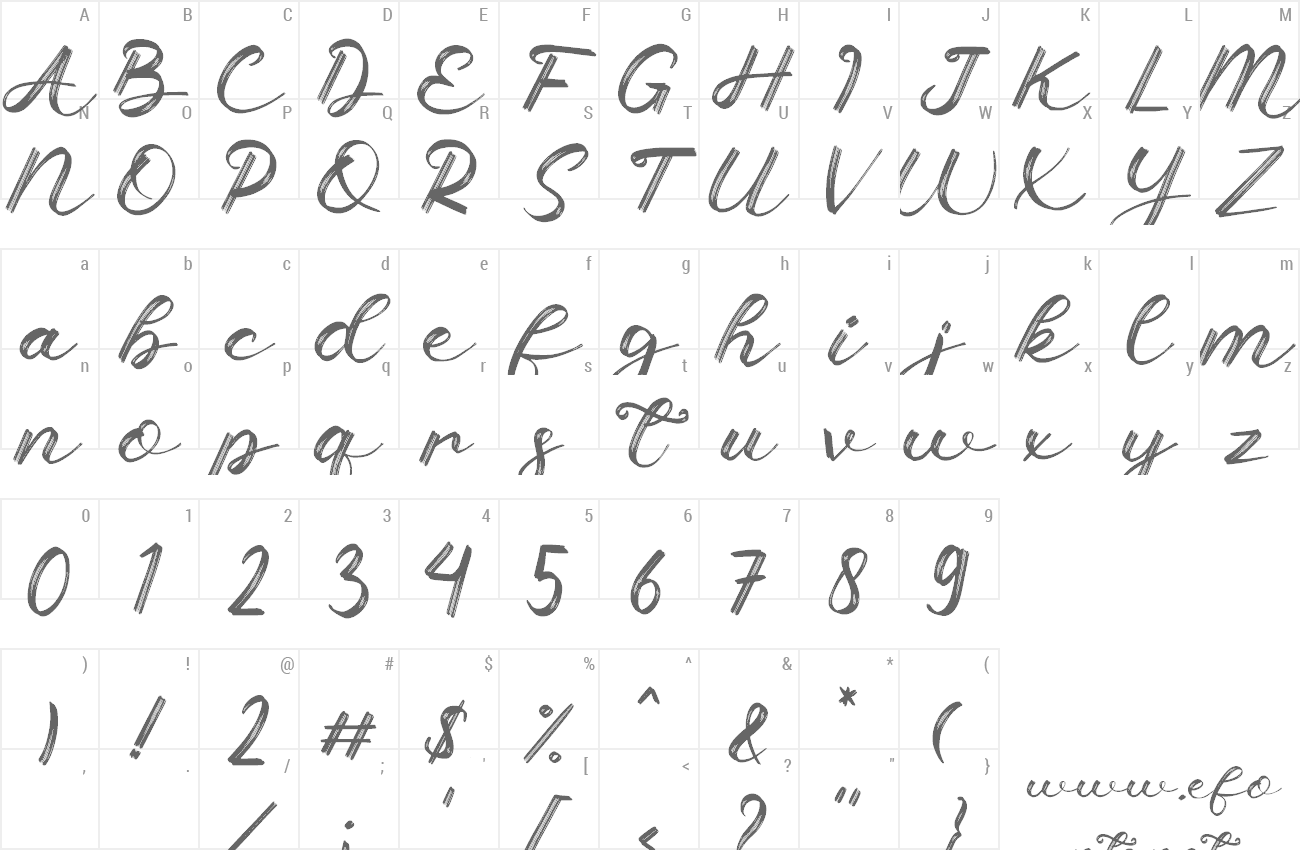 A B C D E F G H I J K L M
A B C D E F G H I J K L M
N O P Q R S T U V W X Y Z
N O P Q R S T U V W X Y Z
a b c d e f g h i j k l m
a b c d e f g h i j k l m
n o p q r s t u v w x y z
n o p q r s t u v w x y z
0 1 2 3 4 5 6 7 8 9
0 1 2 3 4 5 6 7 8 9
) ! @ # $ % ^ & * (
) ! 2 # $ % ^ & * (
, . / ; ' [ < ? " }
/ ; ' [ < ? " }
www.efo